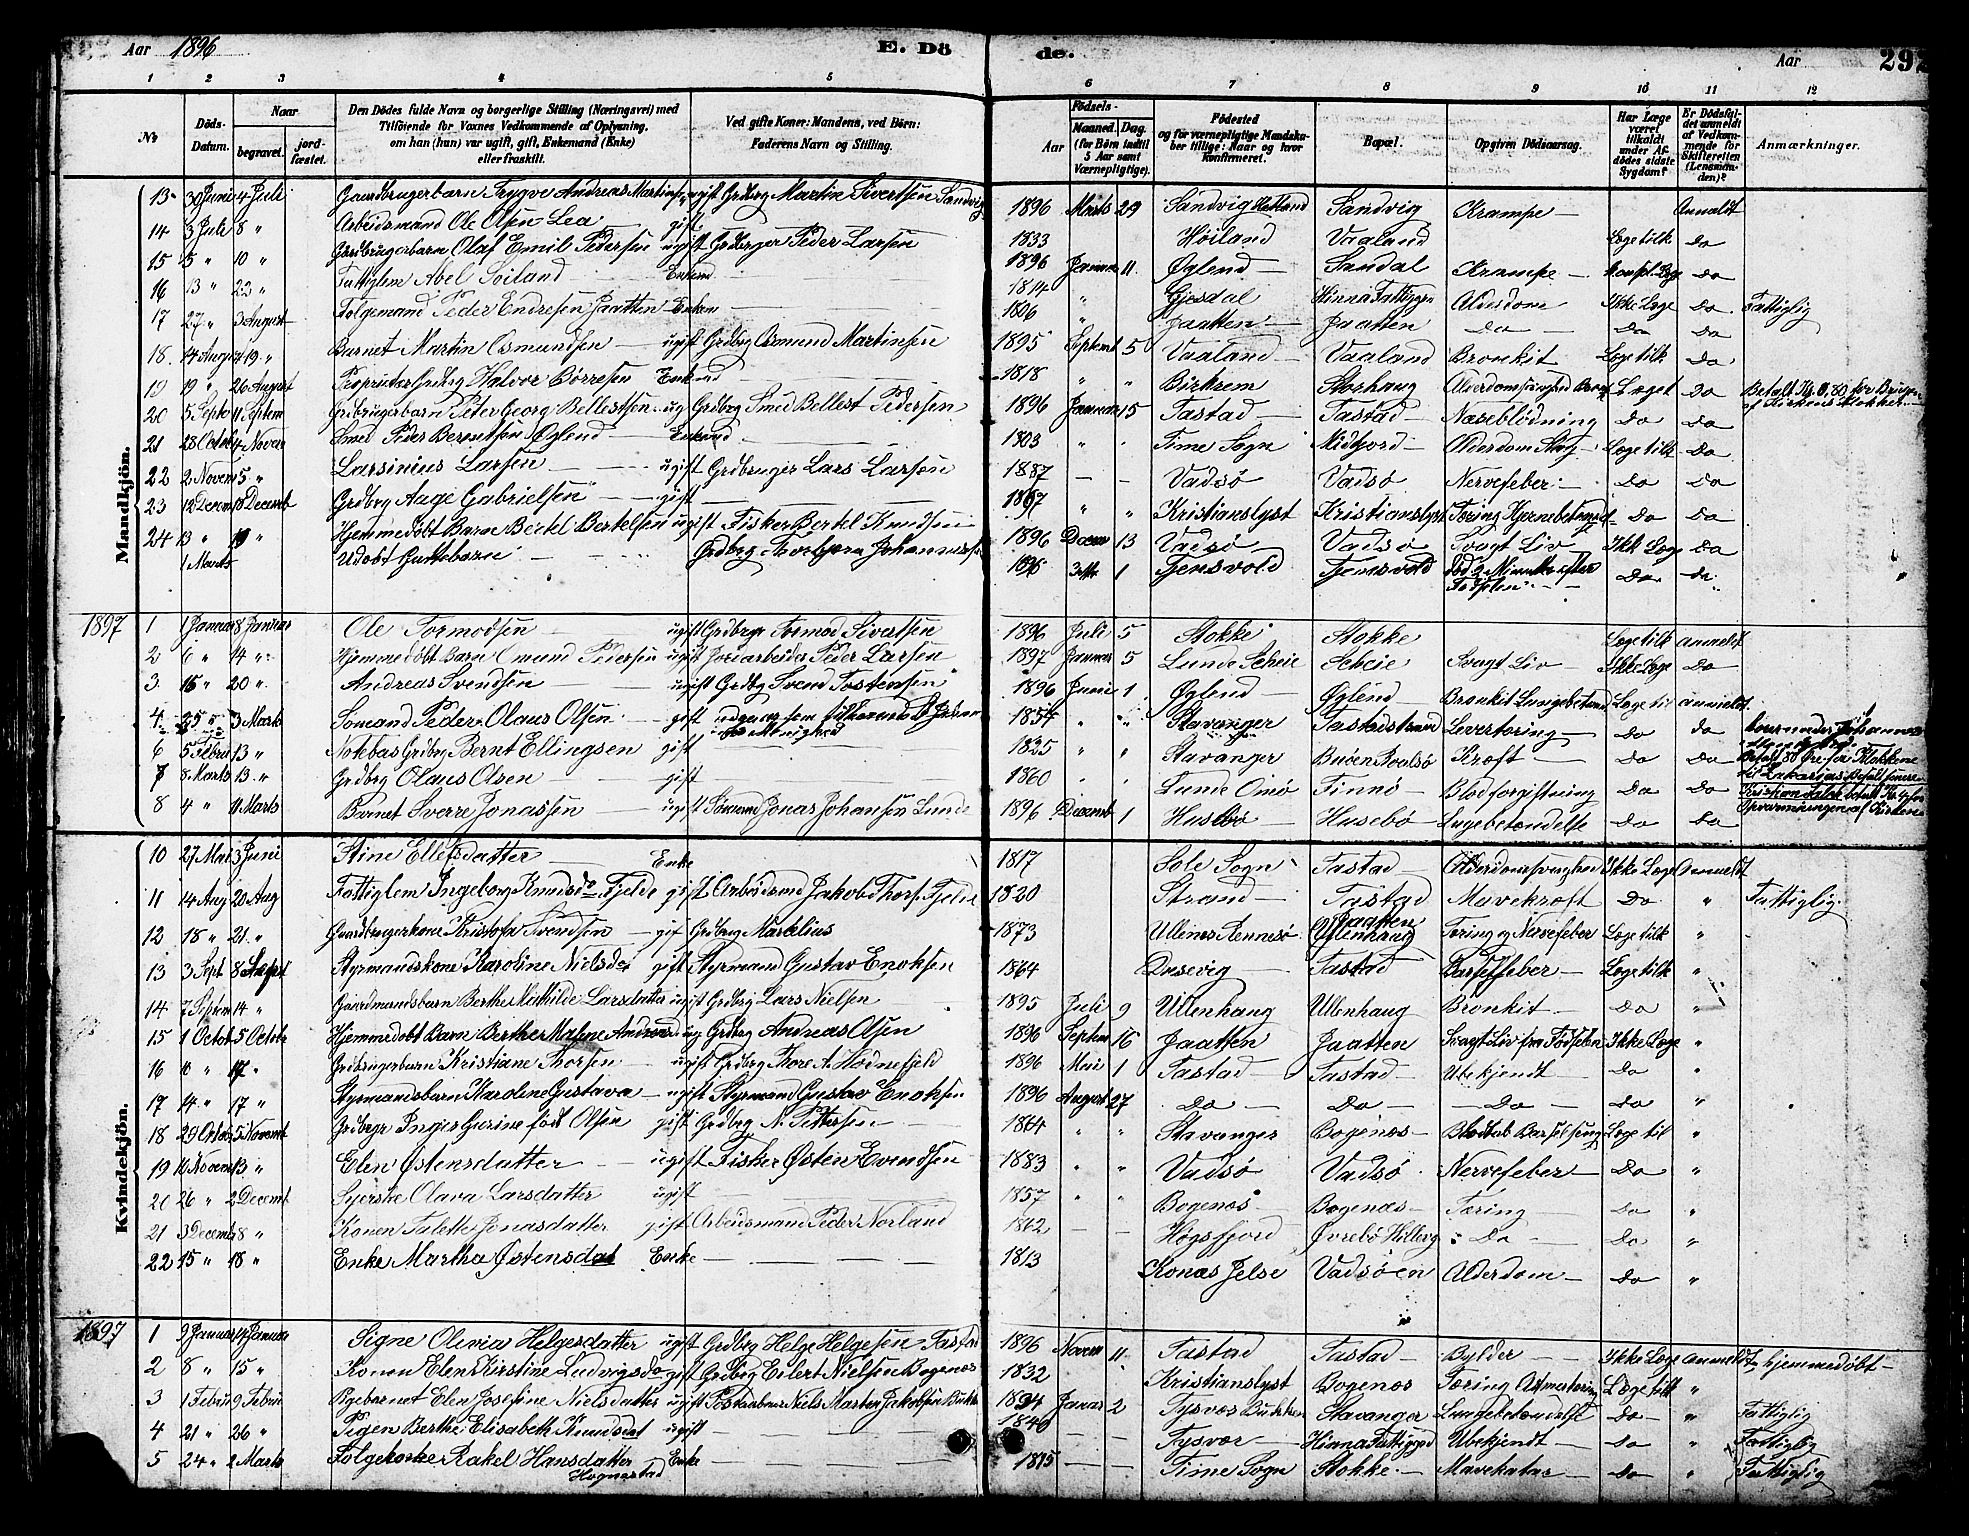 Aar 1896 E. Dö de. Aar 292
1 2 3 4 5 6 7 8 9 10 11 12
No Döds-Datum. Naar begravet. jordfæstet. Den Dödes fulde Navn og borgerlige Stilling (Næringsvei) med Tilföiende for Voxnes Vedkommende af Oplysning, om han (hun) var ugift, gift, Enkemand (Enke) eller fraskilt. Ved gifte Koner: Mandens, ved Börn: Faderens Navn og Stilling. Födsels- Aar Maaned. Dag. (for Börn indtil 5 Aar samt Værnepligtige). Födested og for værnepligtige Mandskaber tillige: Naar og hvor konfirmeret. Bopæl. Opgiven Dödsaarsag. Har Læge været tilkaldt under Afdödes sidste Sygdom? Er Dödsfaldet anmeldt af Vedkommende for Skifteretten (Lensmanden)? Anmærkninger.
Mandkjön.
13 30 Juni 4 Juli Gaardbrugerbarn Trygve Andreas Martinsen ugift Grdbrg Martin Sivertsen Sandvig 1896 Marts 29 Sandvig Hetland Sandvig Krampe Anmeldt
14 3 Juli 8 " Arbeidsmand Ole Olsen Lea gift 1833 Höiland Vaaland Læge tilk Do
15 5 " 10 " Gardbrugerbarn Olaf Emil Pedersen ugift Grdbrger Peder Larsen 1896 Januar 11 Øglend Sandal Krampe Do
16 13 " 23 " Fattiglem Abel Soiland Enkemd 1814 " Gjesdal Hinna Fattiggrd Alderdom Ikke Læge Do Fattiglig
17 27 " 3 August Folgemand Peder Endresen Jaatten Enkem 1806 " Jaatten Jaatten Do Do Do
18 14 Aug 19 " Barnet Martin Osmundsen ugift Grdbrg Osmund Martinsen 1895 Septemb 5 Vaaland Vaaland Bronkit Læge tilk Do
19 19 " 26 August Proprietær Grdbrg Halvor Börresen Enkemd 1818 " " Birkrem Storhaug Læget Do
20 5 Septe 11 Septem Grdbrugerbarn Peter Georg Bellestsen ug Grdbrg Smed Bellest Pedersen 1896 Januar 15 Tastad Tastad Næseblödning Do Do
21 28 Octob 4 Novem Smed Peder Berentsen Øglend Enkemd 1803 " " Time Sogn Midtjord Alderdom Læge tilk Do
22 2 Novem 5 " Larsinius Larsen ugift Grdbruger Lars Larsen 1887 Vadsö Vadsö Nervefeber Do Do
23 12 Decem 18 Decemb Grdbrg Aage Gabrielsen gift 1867 " " Kristianslyst Kristianslyst Tæring Hjernebetændelse Do Do
24 13 " 19 " Hjemmedöbt Barn Bertel Bertelsen ugift Fisker Bertel Knudsen 1896 Decem 13 Vadsö Vadsö Svagt Liv Ikk Læge Do
1 Marts Udöbt Guttebarn Grdbrg Torbjörn Johannessen 1896 1 Tjensvold Tjensvold död 2 Minutter efter Födslen Do Do
1897 1 1 Januar 8 Januar Ole Tormodsen ugift Grdbrgr Tormod Sivertsen 1896 Juli 5 Stokke Stokke Læge tilk Anmeldt
2 6 " 14 " Hjemmedöbt Barn Omund Pedersen ugift Jordarbeider Peder Larsen 1897 Januar 5 Lunde Scheie Scheie Svagt Liv Ikke Læge Do
3 15 " 20 " Andreas Svendsen ugift Grdbrg Svend Tostensen 1896 Juni 1 Øglend Øglend Bronkit Lungebetænd Læge til anmeldt
4 25 " 3 Marts Sömand Peder Olaus Olsen gift 1854 " " Stavanger Tastadstrand Levertæring Do Do
6 5 Febru 13 " Nótbas Grdbrg Bernt Ellingsen gift 1825 " " Stavanger Buöen Roalsö Kræft Do Do
7 8 Marts 13 " Grdbrg Olaus Olsen gift 1860 " Lunde Omö Finnö Blodforgiftning Do Do
8 4 " 11 Marts Barnet Sverre Jonassen ugift Sömand Jonas Johansen Lunde 1896 Decemb 1 Husebö Husebö Lungebetændelse Do Do
Kvindekjön.
10 27 Mai 3 Juni Stine Ellefsdatter Enke 1817 Sole Sogn Tastad Alderdomssvaghed Ikke Læge Anmeldt
11 14 Aug 20 Aug Fattiglem Ingeborg Knudsdr Tjelde gift Arbeidsmd Jakob Thors. Tjelde 1820 Strand Tastad Mavekræft Do " Fattiglig
12 18 " 21 " Gaardbrugerkone Kristofa Svendsen gif Grdbrg Marselius 1873 Rennesö Jaatten Ullenhaug Tæring og Nervefeber Læge tilk "
13 3 Sept 8 Sept Styrmandskone Karoline Nielsdr gift Styrmand Gustav Enoksen 1864 Dusevig Tastad Barselfeber Læge tilk "
14 7 Septem 14 " Gaardmandsbarn Berthe Mathilde Larsdatter ugift Grdbrg Lars Nielsen 1895 Juli 9 Ullenhaug Ullenhaug Bronkit Do "
15 1 Octob 5 Octobr Hjemmedöbt Barn Berthe Malene Andreasd ug Grdbrg Andreas Olsen 1896 Septem 16 Jaatten Jaatten Svagt Liv fra Födselen Ikke Læge "
16 10 " 17 " Grdbrugerbarn Kristiane Thorsen ugift Grdbrg Thore A. Hodnefjeld 1896 Mai 1 Tastad Tastad Ubekjendt Do "
17 14 " 17 " Styrmandsbarn Karoline Gustava ugift Styrmand Gustav Enoksen 1896 August 27 Do Do Do Do "
18 29 Octob 5 Novemb Grdbrgr Inger Gurine född Olsen gift Grdbrg N. Pettersen 1864 " " Stavanger Bogenæs Blodtab Barselseng Læge til "
19 10 Novem 13 " Elen Østensdatter ugift Fisker Østen Evendsen 1883 " " Vadsö Vadsö Nervefeber Do "
20 26 " 2 Decemb Syerske Olava Larsdatter ugift 1857 " " Bogenæs Bogenæs Tæring Do "
21 3 Decemb 8 " Konen Talette Jonasdatter gift Arbeidsmand Peder Norland 1862 Högsfjord Øvrebö Hillevg Do Do "
22 15 " 18 " Enke Martha Østensdat Enke 1813 Jelse Vadsöen Alderdom Do "
1897 1 9 Januar Januar Signe Olevia Helgesdatter ugift Grdbrg Helge Helgesen Tastad 1896 Novem 11 Tastad Tastad Bylder Ikke Læge anmeldt hjemmedöbt
2 8 " 15 " Konen Elen Kirstine Ludvigsda gift Grdbrg Eilert Nielsen Bogenæs 1832 Kristianslyst Bogenæs Tæring Læge tilk "
3 1 Febru 9 Febru Plejebarnet Elen Josefine Nielsdatter ugift Postaabner Niels Martin Jakobsen 1894 Januar 2 Tysvær Stavanger Lungebetændelse Do " Fattiglig
4 21 " 26 " Pigen Berthe Elisabeth Knudsdat ugift 1840 Tysvær Hinna Fattiggrd Ubekjendt Do " Fattiglig
5 24 " 2 Marts Folgekone Rakel Hansdatter Hognestad Enke 1815 Time Sogn Stokke Mavekatar Do " Fattiglig